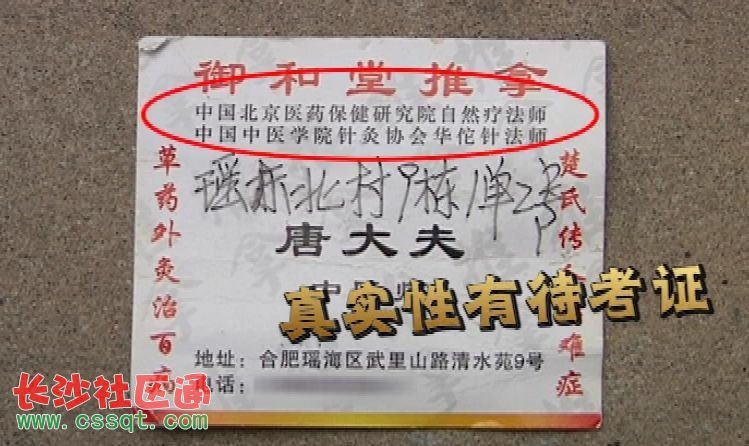 御和堂推拿
中国北京医药保健研究院自然疗法师
中国中医学院针灸协会华佗针法师
瑶东北村9栋1单
唐大夫
草药外灸治百病
楚氏传
难症
真实性有待考证
地址：合肥瑶海区武里山路清水苑9号
电话：
长沙社区通
www.cssqt.com